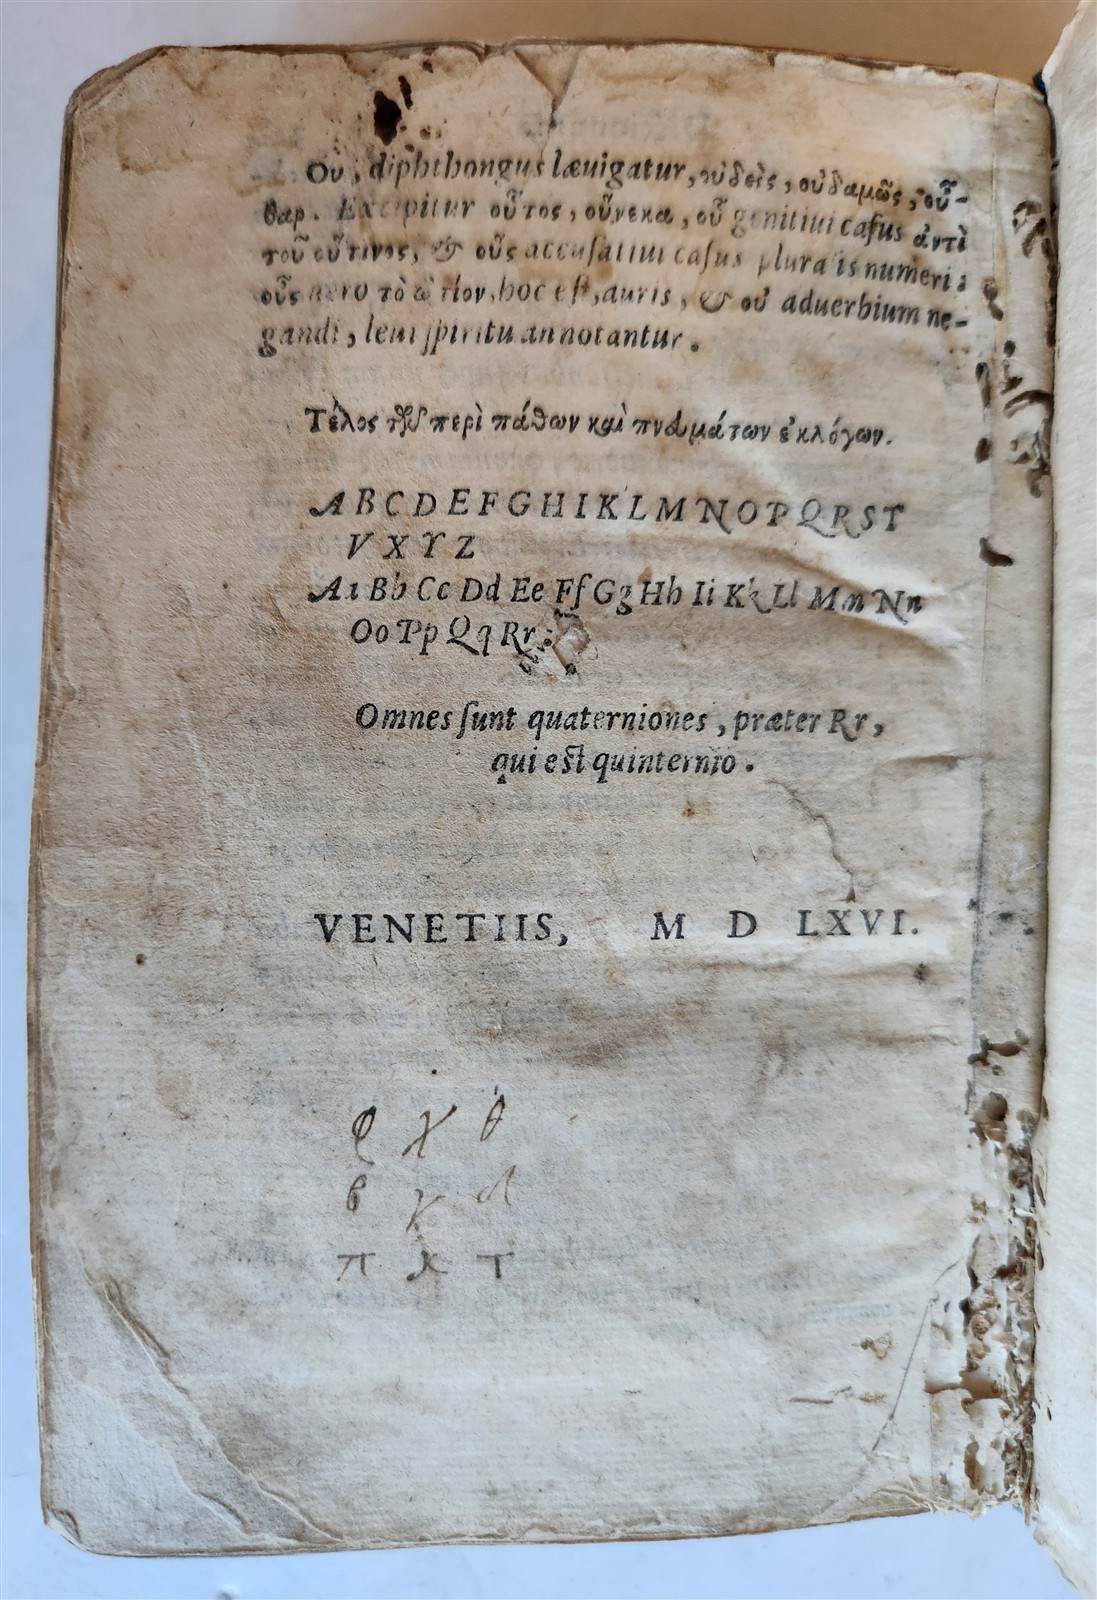 Ου, diphthongus læuigatur, οὐδεὶς, οὐδαμῶς, οὖ-
θαρ. Excipitur οὗτος, οὕνεκα, οὗ genitiui casus ἀντὶ
τοῦ οὗτινος, & οὓς accusatiui casus pluralis numeri:
οὖς uero τὸ ὠτίον, hoc est, auris, & οὐ aduerbium ne-
gandi, leui spiritu annotantur.
Τέλος τῶν περὶ πάθων καὶ πνευμάτων ἐκλόγων.
A B C D E F G H I K L M N O P Q R S T
V X Y Z
Aa Bb Cc Dd Ee Ff Gg Hh Ii Kk Ll Mm Nn
Oo Pp Qq Rr.
Omnes ſunt quaterniones, præter Rr,
qui est quinternio.
VENETIIS, M D LXVI.
φ χ θ
β γ δ
π κ τ